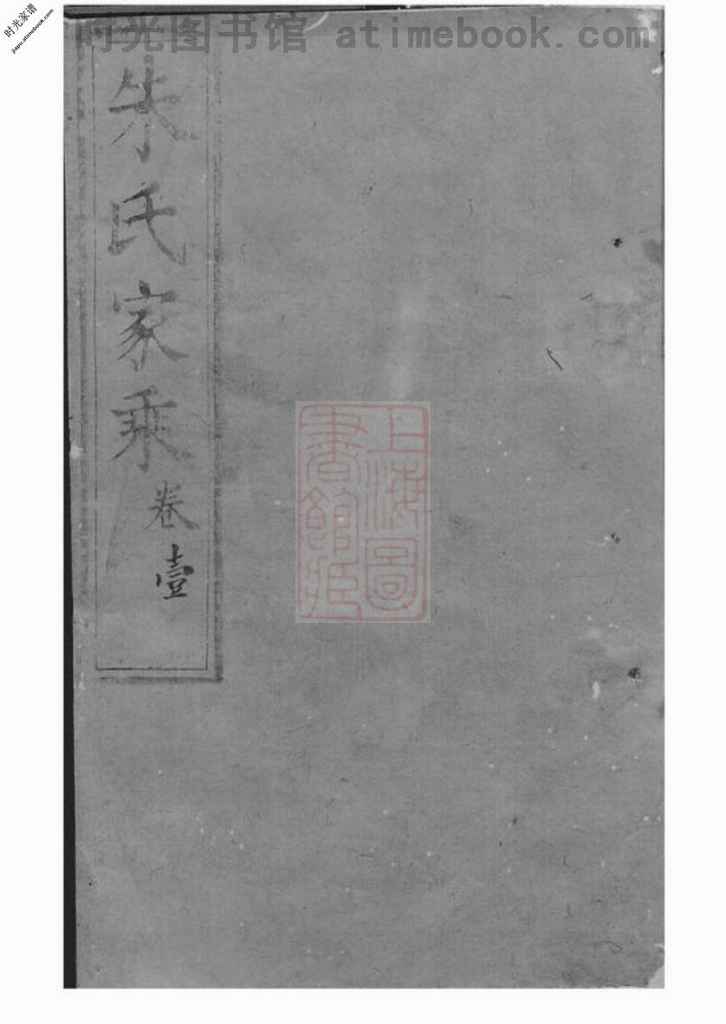 时光图书馆 atimebook.com
时光家谱
jiapu.atimebook.com
朱氏家乘
卷壹
上海圖
書館藏